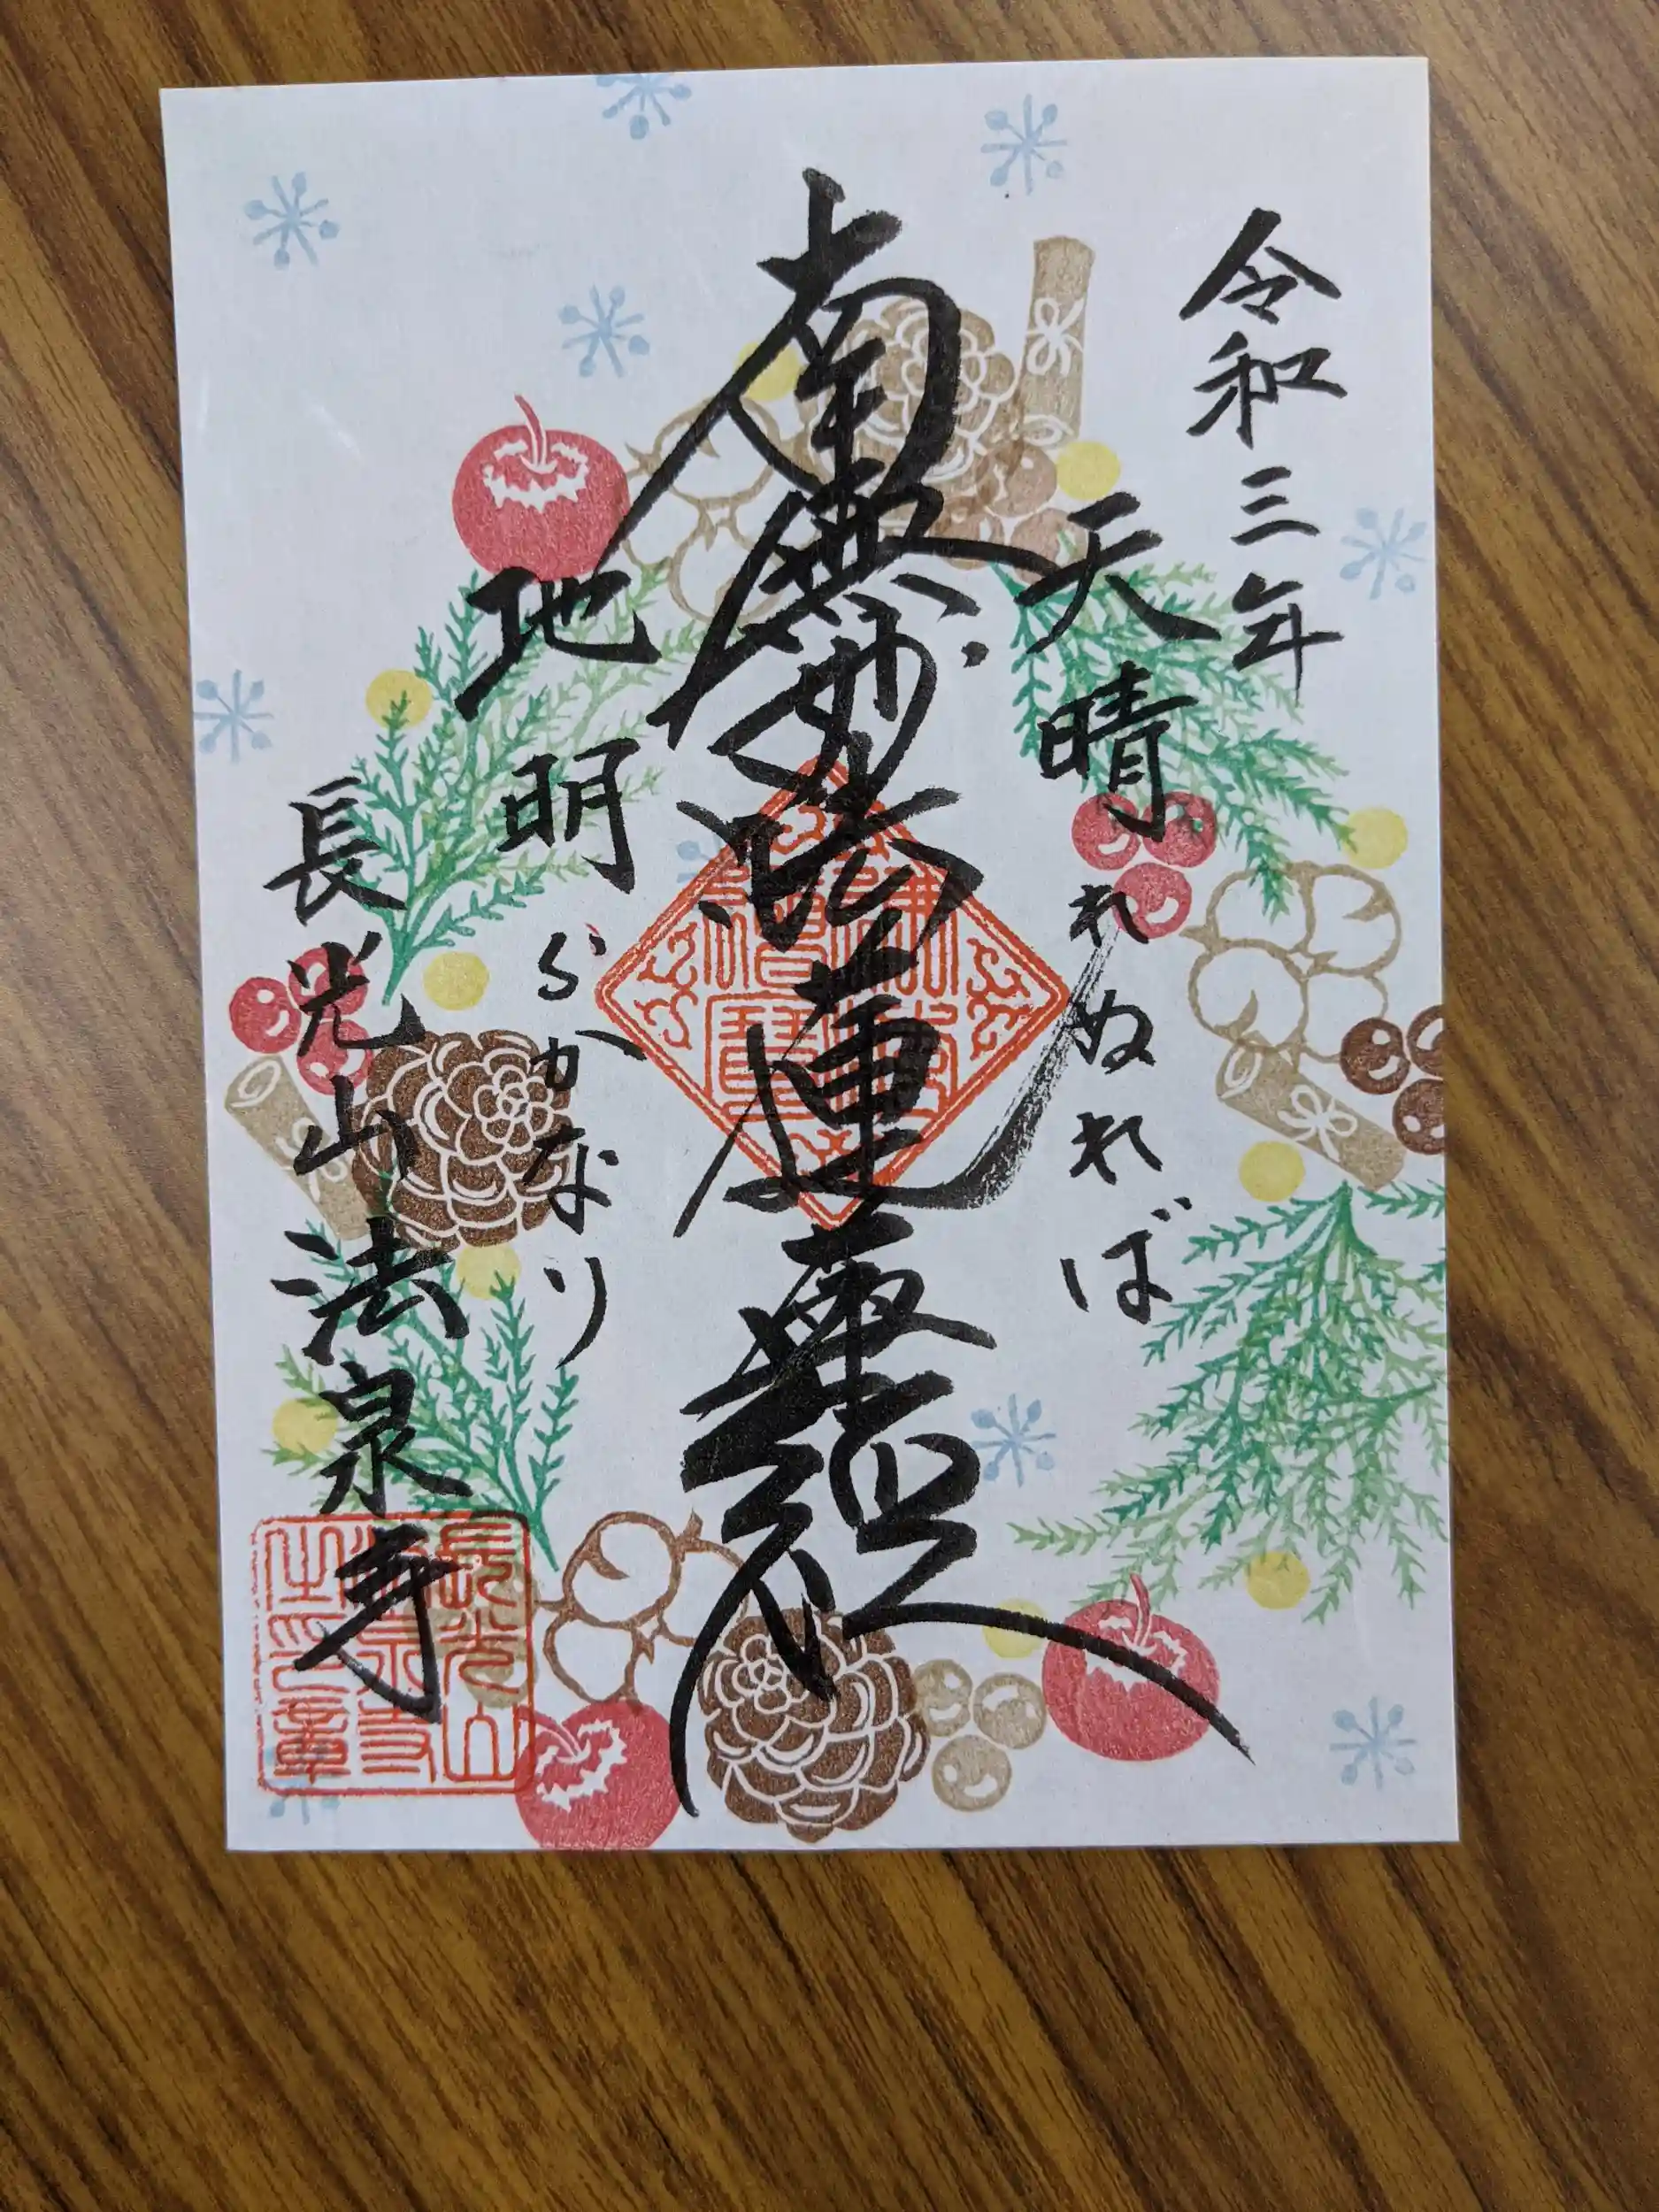 令和三年
天晴れぬれば
南無妙法蓮華経
地明らかなり
長光山法泉寺
長光山
法泉寺
之印章